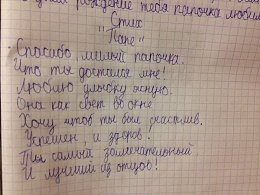 рождение тебя папочка любим
Стих
"Папе"
Спасибо, милый папочка,
Что ты достался мне!
Люблю улыбку ясную,
Она как свет во окне
Хочу чтоб ты был счастлив,
Успешен, и здоров!
Ты самый замечательный
И лучший из отцов!